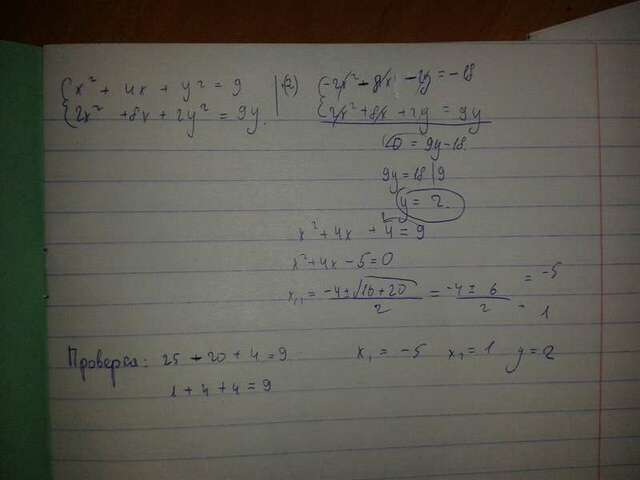 {x² + 4x + y² = 9 |·(-2) {-2x² - 8x - 2y = -18
{2x² + 8x + 2y² = 9y. {2x² + 8x + 2y = 9y
0 = 9y - 18.
9y = 18 | 9
y = 2.
x² + 4x + 4 = 9
x² + 4x - 5 = 0
x₁,₁ = (-4 ± √(16 + 20))/2 = (-4 ± 6)/2 = -5
- 1
Проверка: 25 - 20 + 4 = 9 x₁ = -5 x₂ = 1 y = 2
1 + 4 + 4 = 9